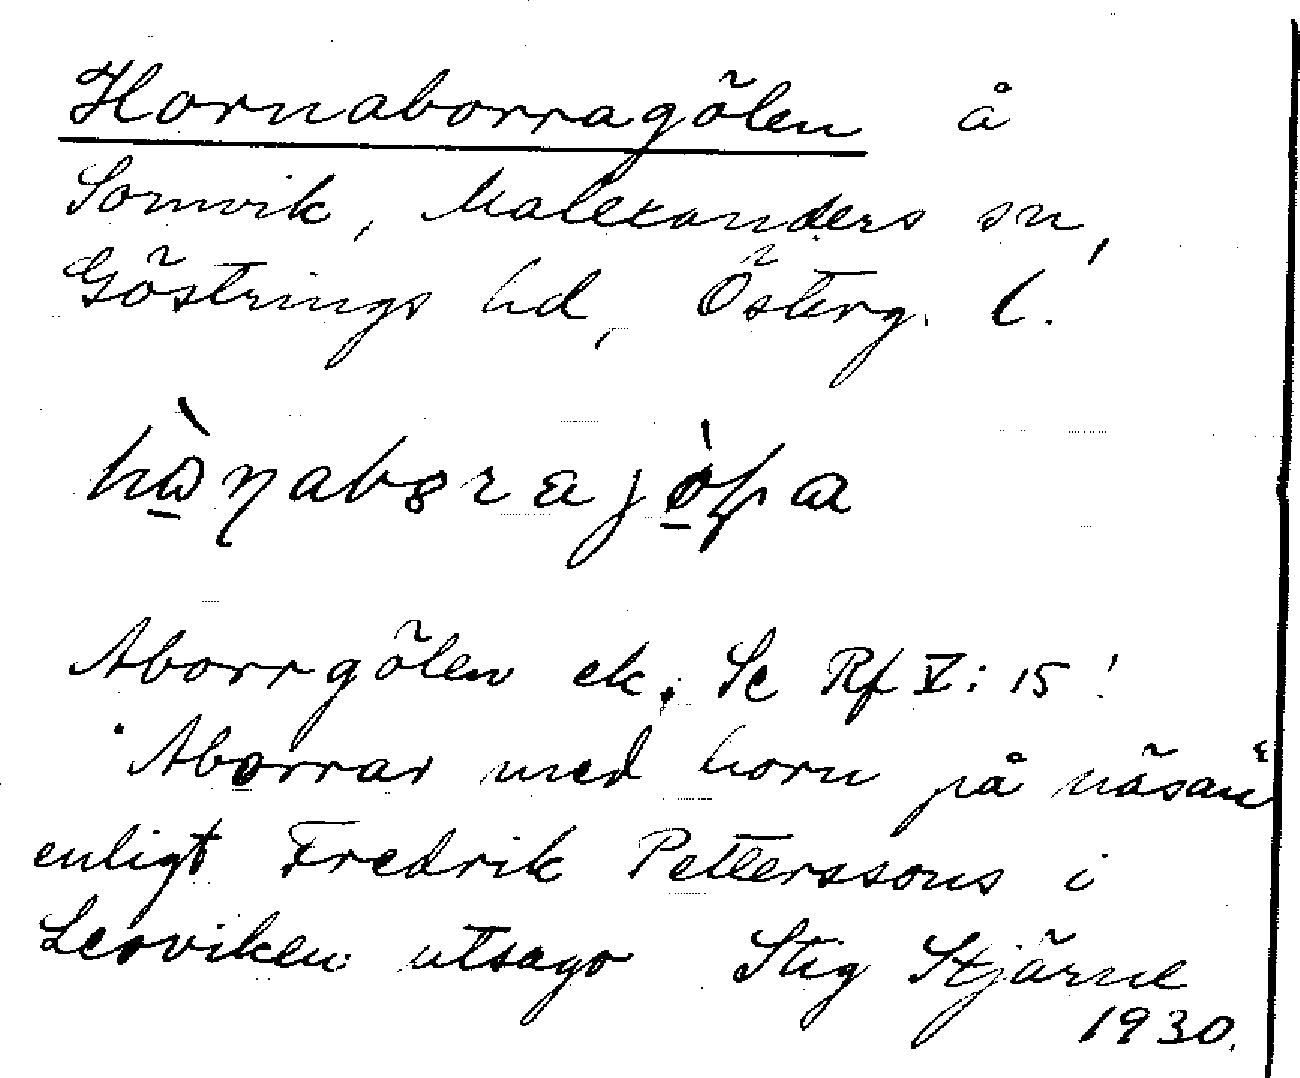 Hornaborragölen å
Somvik, Malexanders sn,
Göstrings hd, Österg. l.
Aborrgölen ek. Se Rf V: 15!
"Aborrar med horn på näsan"
enligt Fredrik Petterssons i
Lerviken utsago Stig Stjärne
1930.